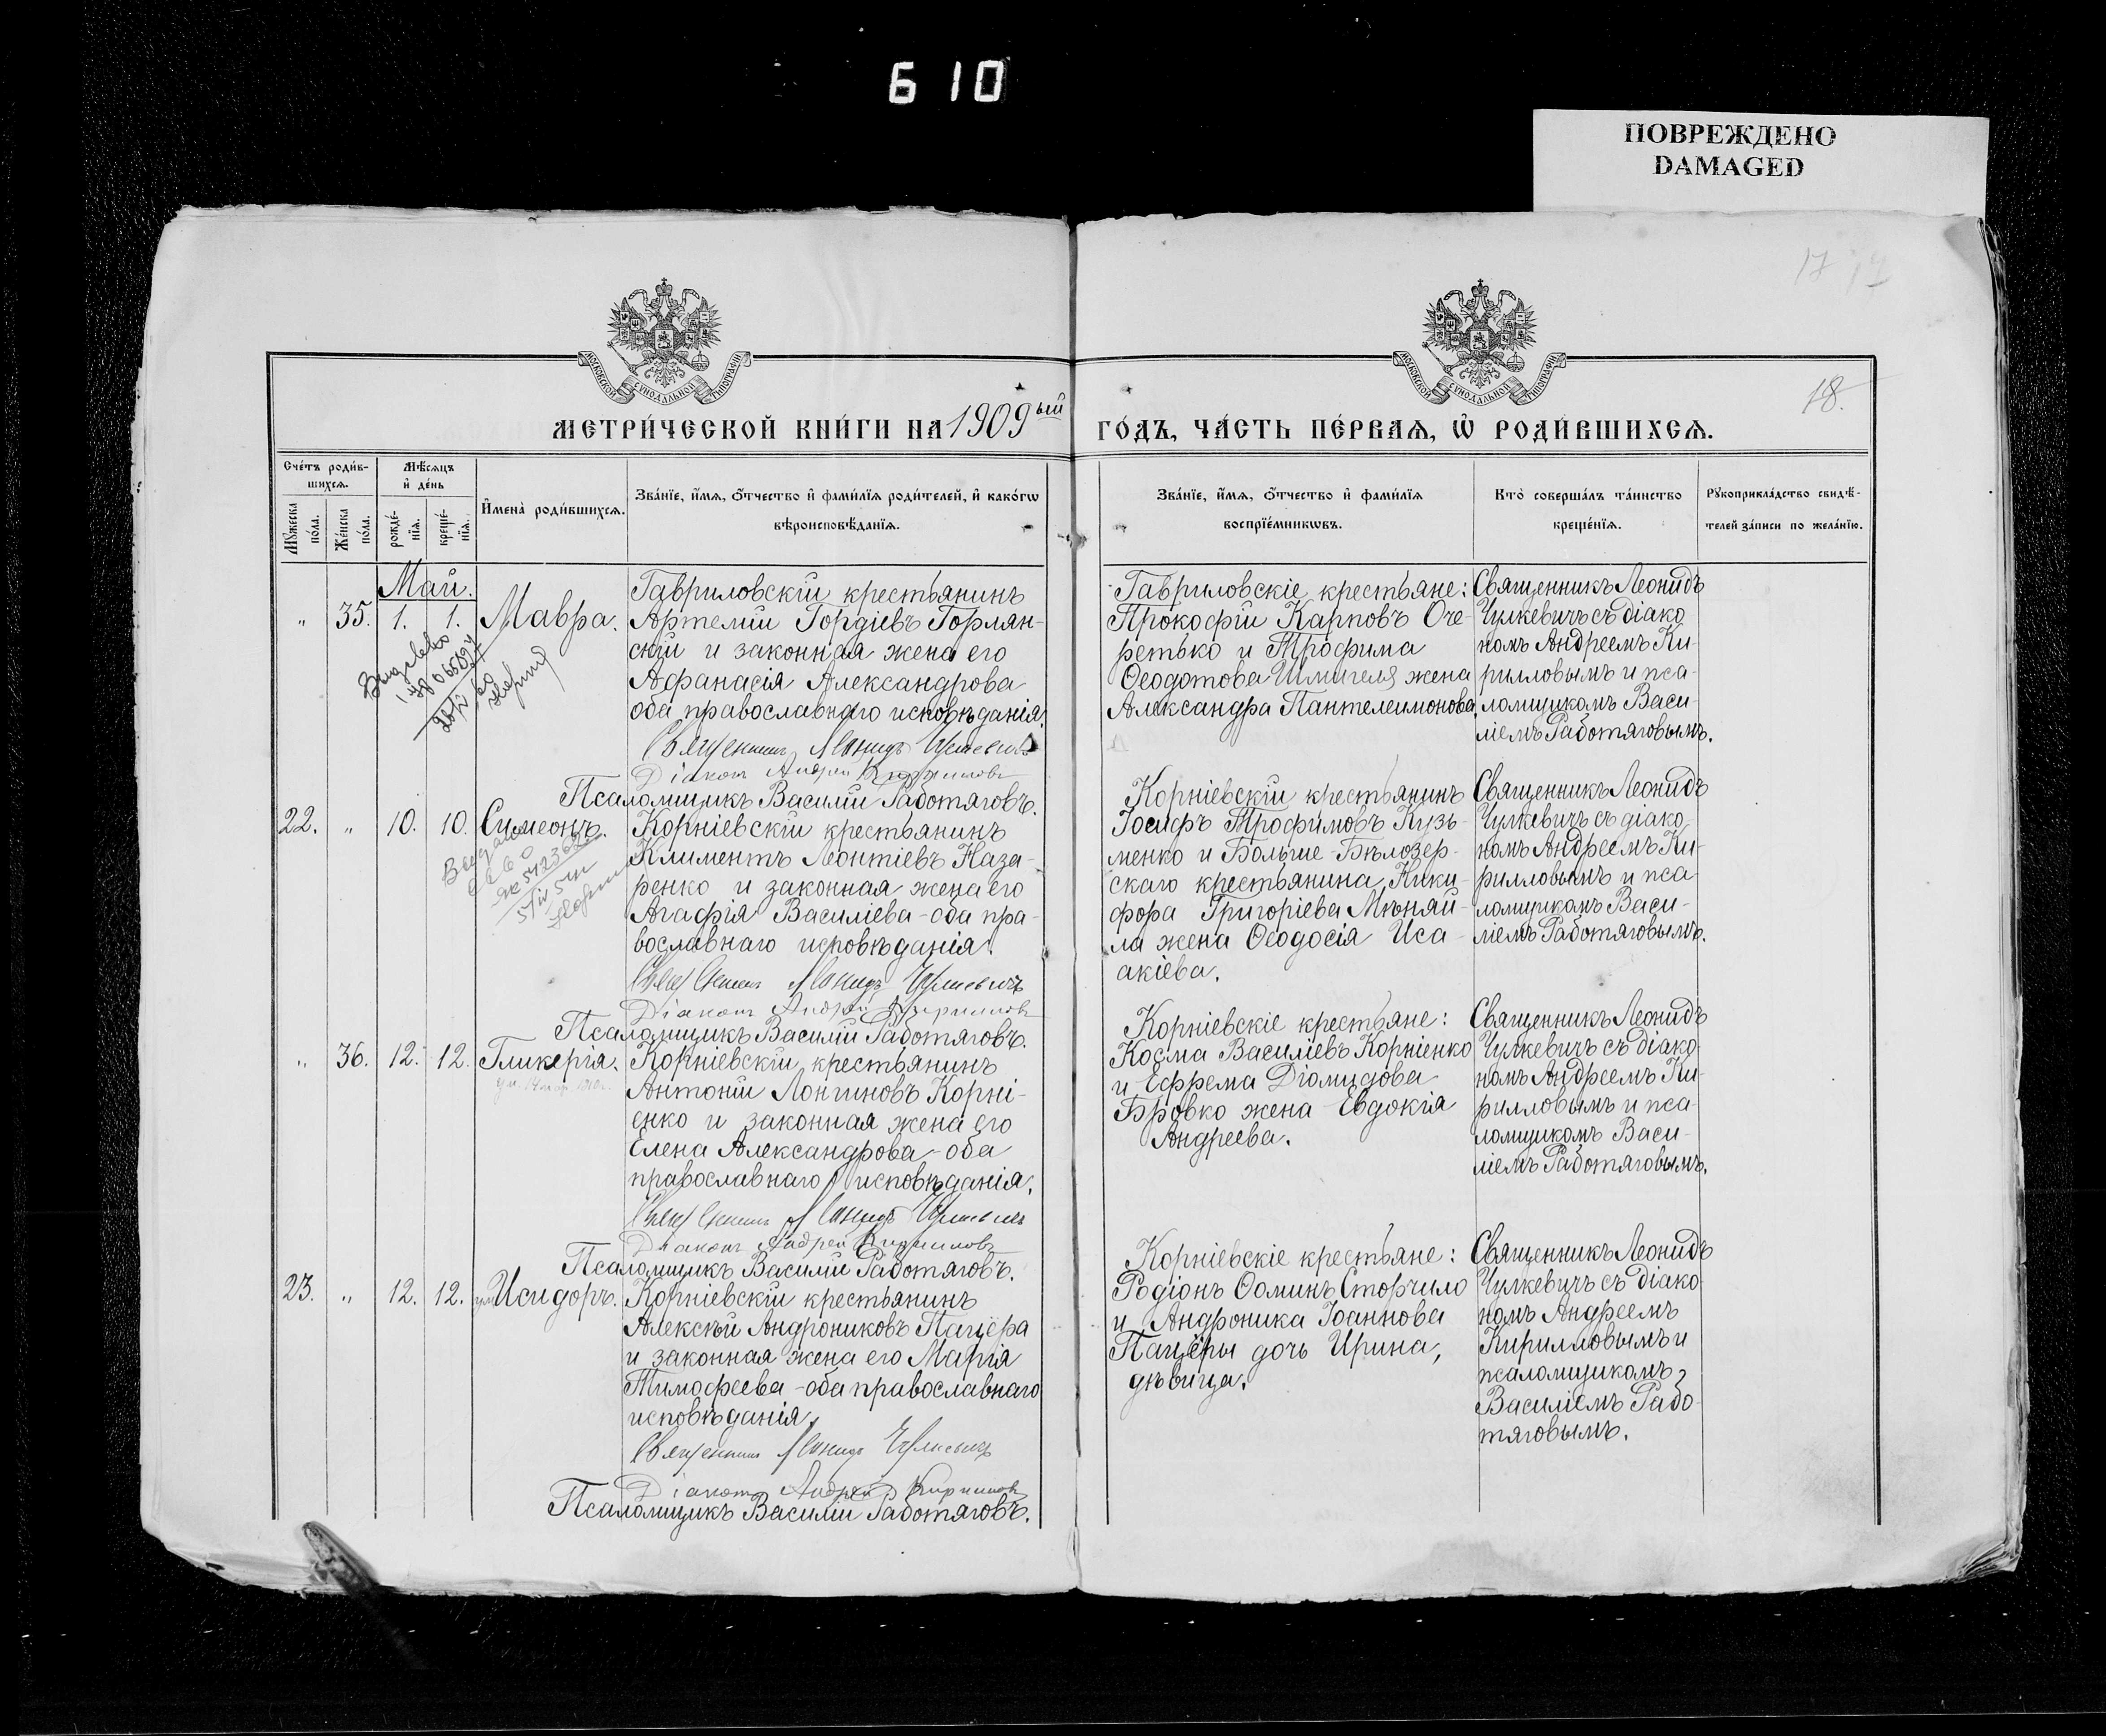 610
ПОВРЕЖДЕНО
DAMAGED
17
18.
МОСКОВСКОЙ СУНОДАЛЬНОЙ ТИПОГРАФІИ
МОСКОВСКОЙ СУНОДАЛЬНОЙ ТИПОГРАФІИ
МЕТРИ́ЧЕСКОЙ КНИ́ГИ НА 1909ый ГО́ДЪ, ЧА́СТЬ ПЕ́РВАѦ, Ѽ РОДИ́ВШИХСѦ.
Сче́тъ роди́в-
шихсѧ.
Мꙋ́жеска по́ла.
Же́нска по́ла.
Мѣ́сѧцъ
и҆ де́нь
рожде́-
нїѧ.
креще́-
нїѧ.
И҆мена̀ роди́вшихсѧ.
Зва́нїе, и҆́мѧ, ѻ҆́тчество и҆ фами́лїѧ роди́телей, и҆ како́гѡ
вѣроисповѣ́данїѧ.
Зва́нїе, и҆́мѧ, ѻ҆́тчество и҆ фами́лїѧ
воспрїе́мникѡвъ.
Кто̀ соверша́лъ та́инство
креще́нїѧ.
Рꙋкоприкла́дство свидѣ́-
телей за́писи по жела́нїю.
Май.
" 35. 1. 1. Мавра.
Гавриловскій крестьянинъ
Артемій Гордіевъ Горлян-
скій и законная жена его
Афанасія Александрова
оба православнаго исповѣданія.
Священникъ Леонидъ Чулкевичъ
Діаконъ Андрей Кирилловъ
Псаломщикъ Василій Работяговъ.
Гавриловскіе крестьяне:
Прокофій Карповъ Оче-
ретько и Трофима
Ѳеодотова Шмигеля жена
Александра Пантелеимонова.
Священникъ Леонидъ
Чулкевичъ съ діако
номъ Андреемъ Ки-
рилловымъ и пса-
ломщикомъ Васи-
ліемъ Работяговымъ.
22. " 10. 10. Симеонъ.
Корніевскій крестьянинъ
Климентъ Леонтіевъ Наза-
ренко и законная жена его
Агафія Василіева - оба пра-
вославнаго исповѣданія.
Священникъ Леонидъ Чулкевичъ
Діаконъ Андрей Кирилловъ
Псаломщикъ Василій Работяговъ.
Корніевскій крестьянинъ
Іосифъ Трофимовъ Кузь-
менко и Больше-Бѣлозер-
скаго крестьянина Ники-
фора Григоріева Мѣняй-
ла жена Ѳеодосія Иса-
акіева.
Священникъ Леонидъ
Чулкевичъ съ діако
номъ Андреемъ Ки-
рилловымъ и пса
ломщикомъ Васи-
ліемъ Работяговымъ.
" 36. 12. 12. Гликерія.
Корніевскій крестьянинъ
Антоній Лонгиновъ Корні-
енко и законная жена его
Елена Александрова - оба
православнаго исповѣданія.
Священникъ Леонидъ Чулкевичъ
Діаконъ Андрей Кирилловъ
Псаломщикъ Василій Работяговъ.
Корніевскіе крестьяне:
Косма Василіевъ Корніенко
и Ефрема Діомидова
Бровко жена Евдокія
Андреева.
Священникъ Леонидъ
Чулкевичъ съ діако
номъ Андреемъ Ки-
рилловымъ и пса
ломщикомъ Васи-
ліемъ Работяговымъ.
23. " 12. 12. Исидоръ.
Корніевскій крестьянинъ
Алексѣй Андрониковъ Пацера
и законная жена его Марія
Тимофеева - оба православнаго
исповѣданія.
Священникъ Леонидъ Чулкевичъ
Діаконъ Андрей Кирилловъ
Псаломщикъ Василій Работяговъ.
Корніевскіе крестьяне:
Родіонъ Ѳоминъ Сторчило
и Андроника Іоаннова
Пацеры дочь Ирина,
дѣвица.
Священникъ Леонидъ
Чулкевичъ съ діако
номъ Андреемъ
Кирилловымъ и
псаломщикомъ
Василіемъ Рабо
тяговымъ.